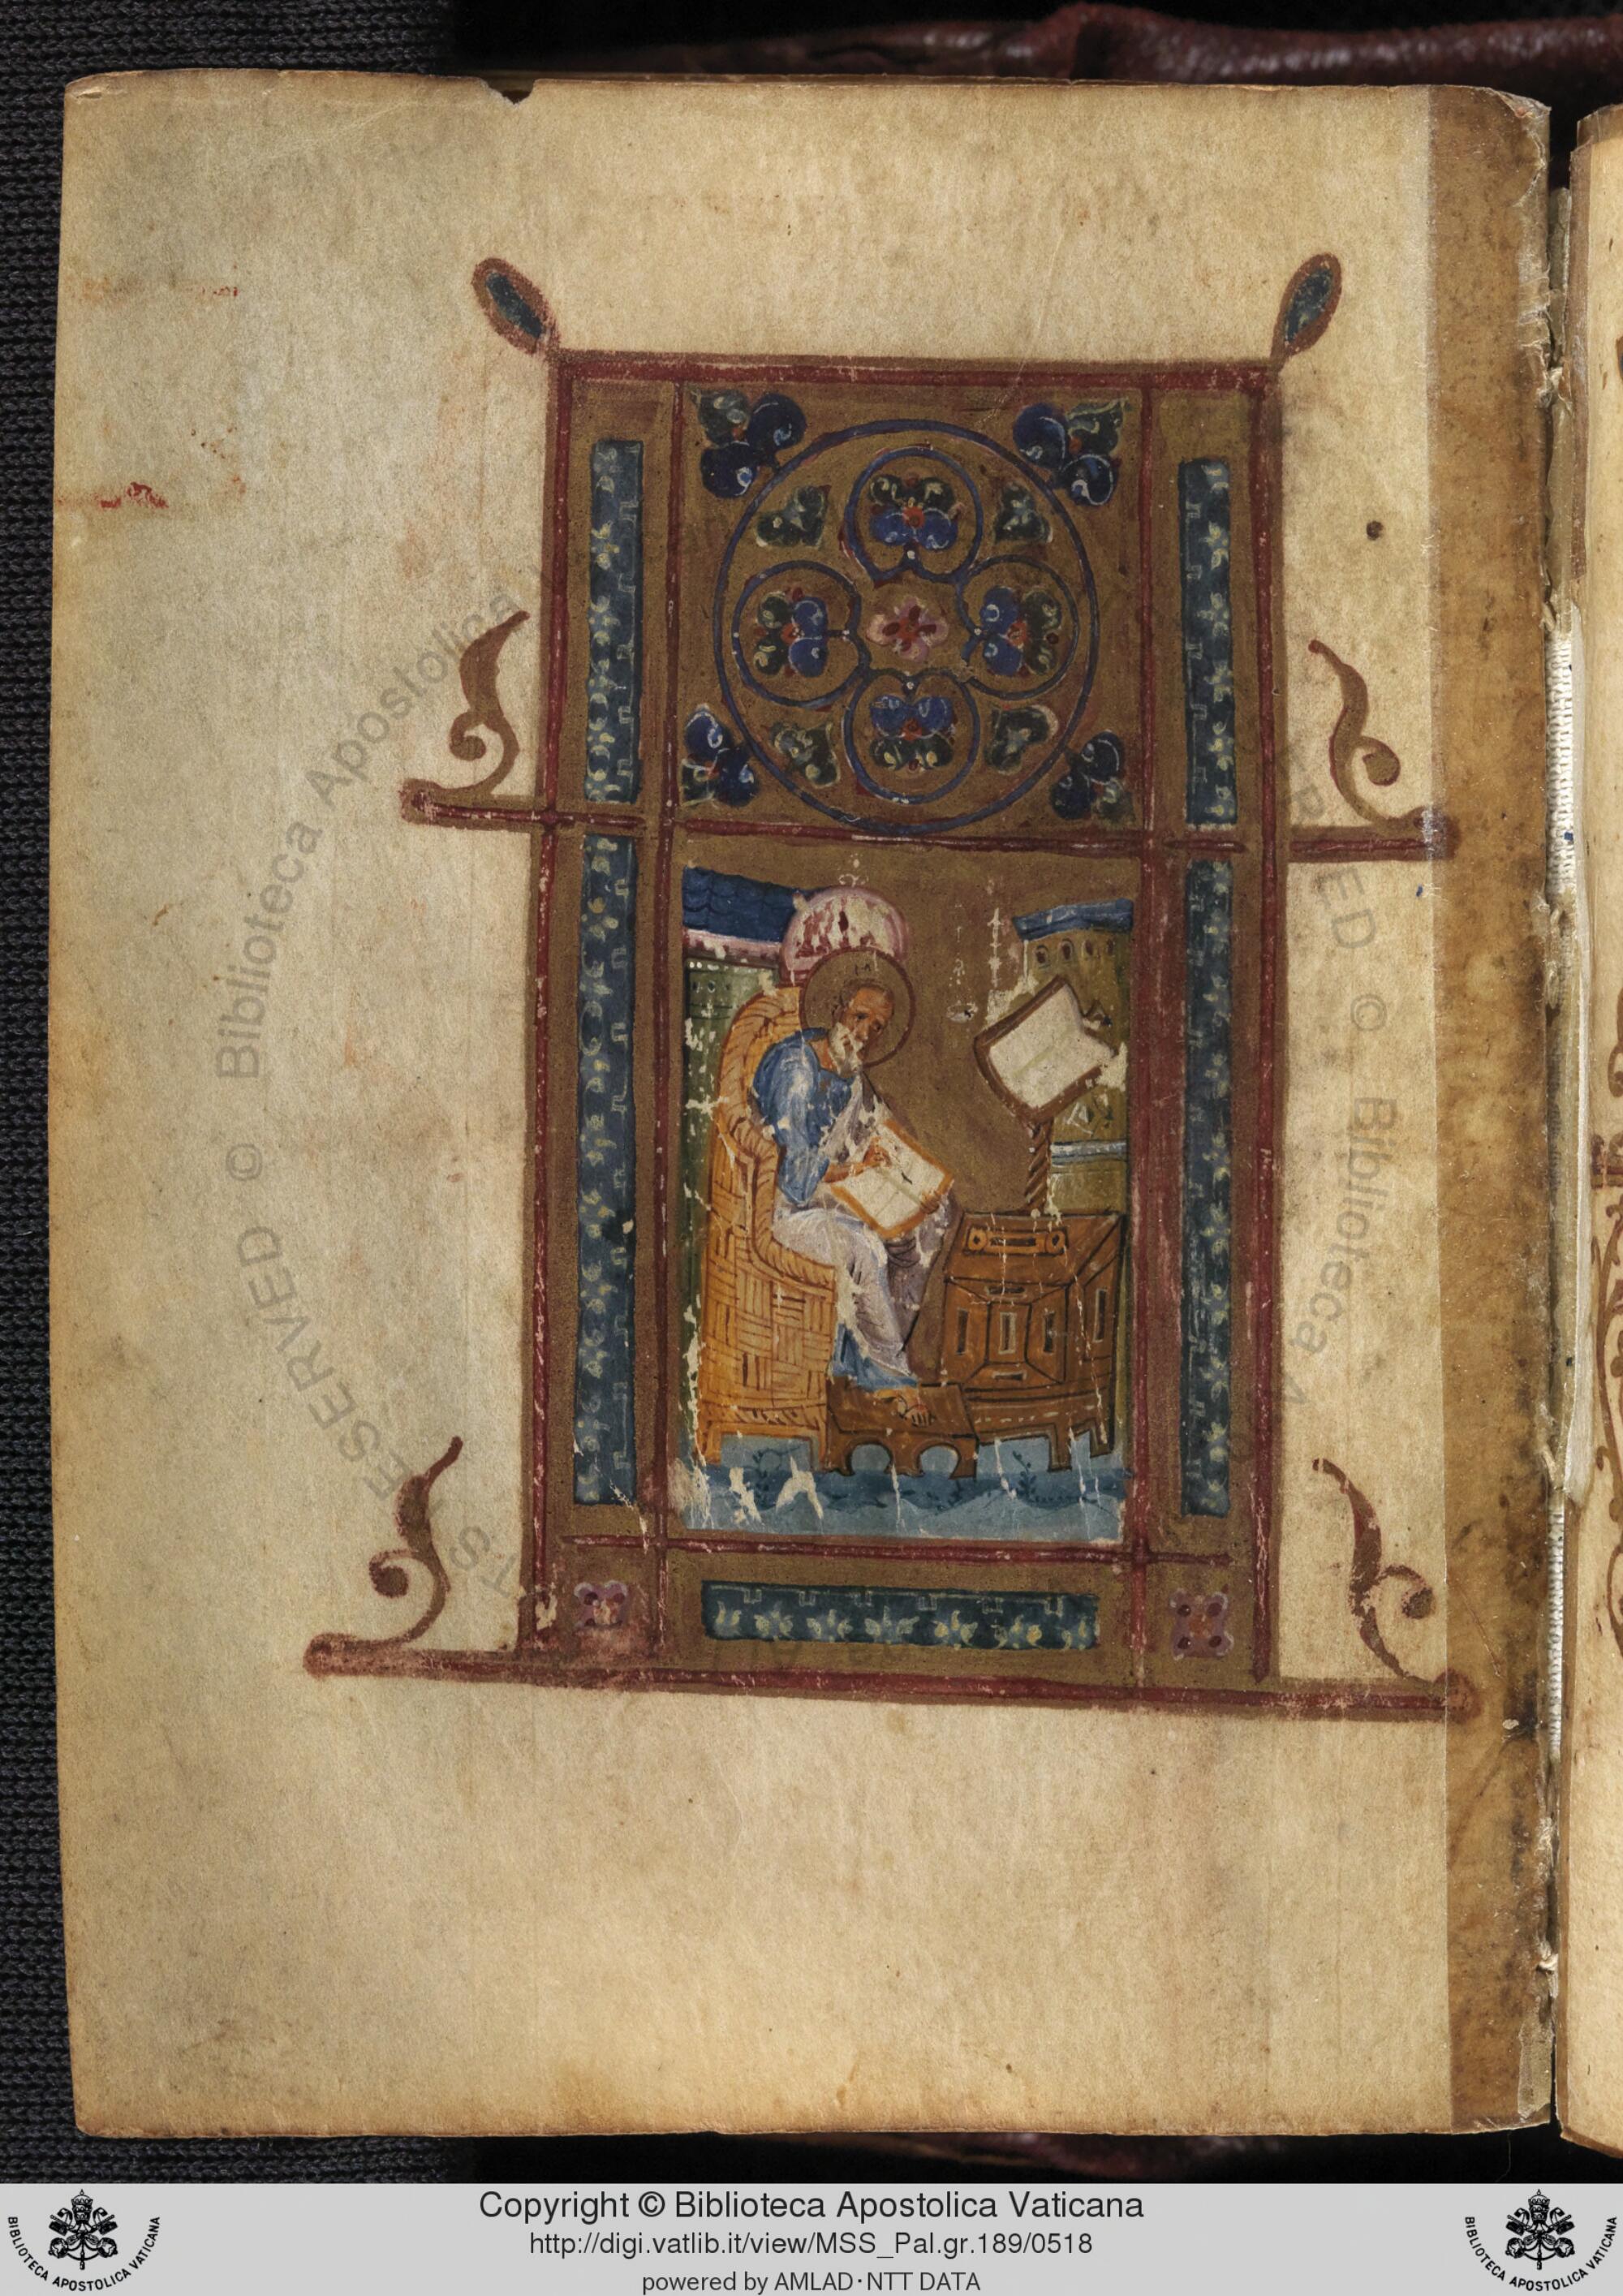 RESERVED © Biblioteca Apostolica
RESERVED © Biblioteca A
Copyright © Biblioteca Apostolica Vaticana
http://digi.vatlib.it/view/MSS_Pal.gr.189/0518
powered by AMLAD·NTT DATA
BIBLIOTECA APOSTOLICA VATICANA
BIBLIOTECA APOSTOLICA VATICANA